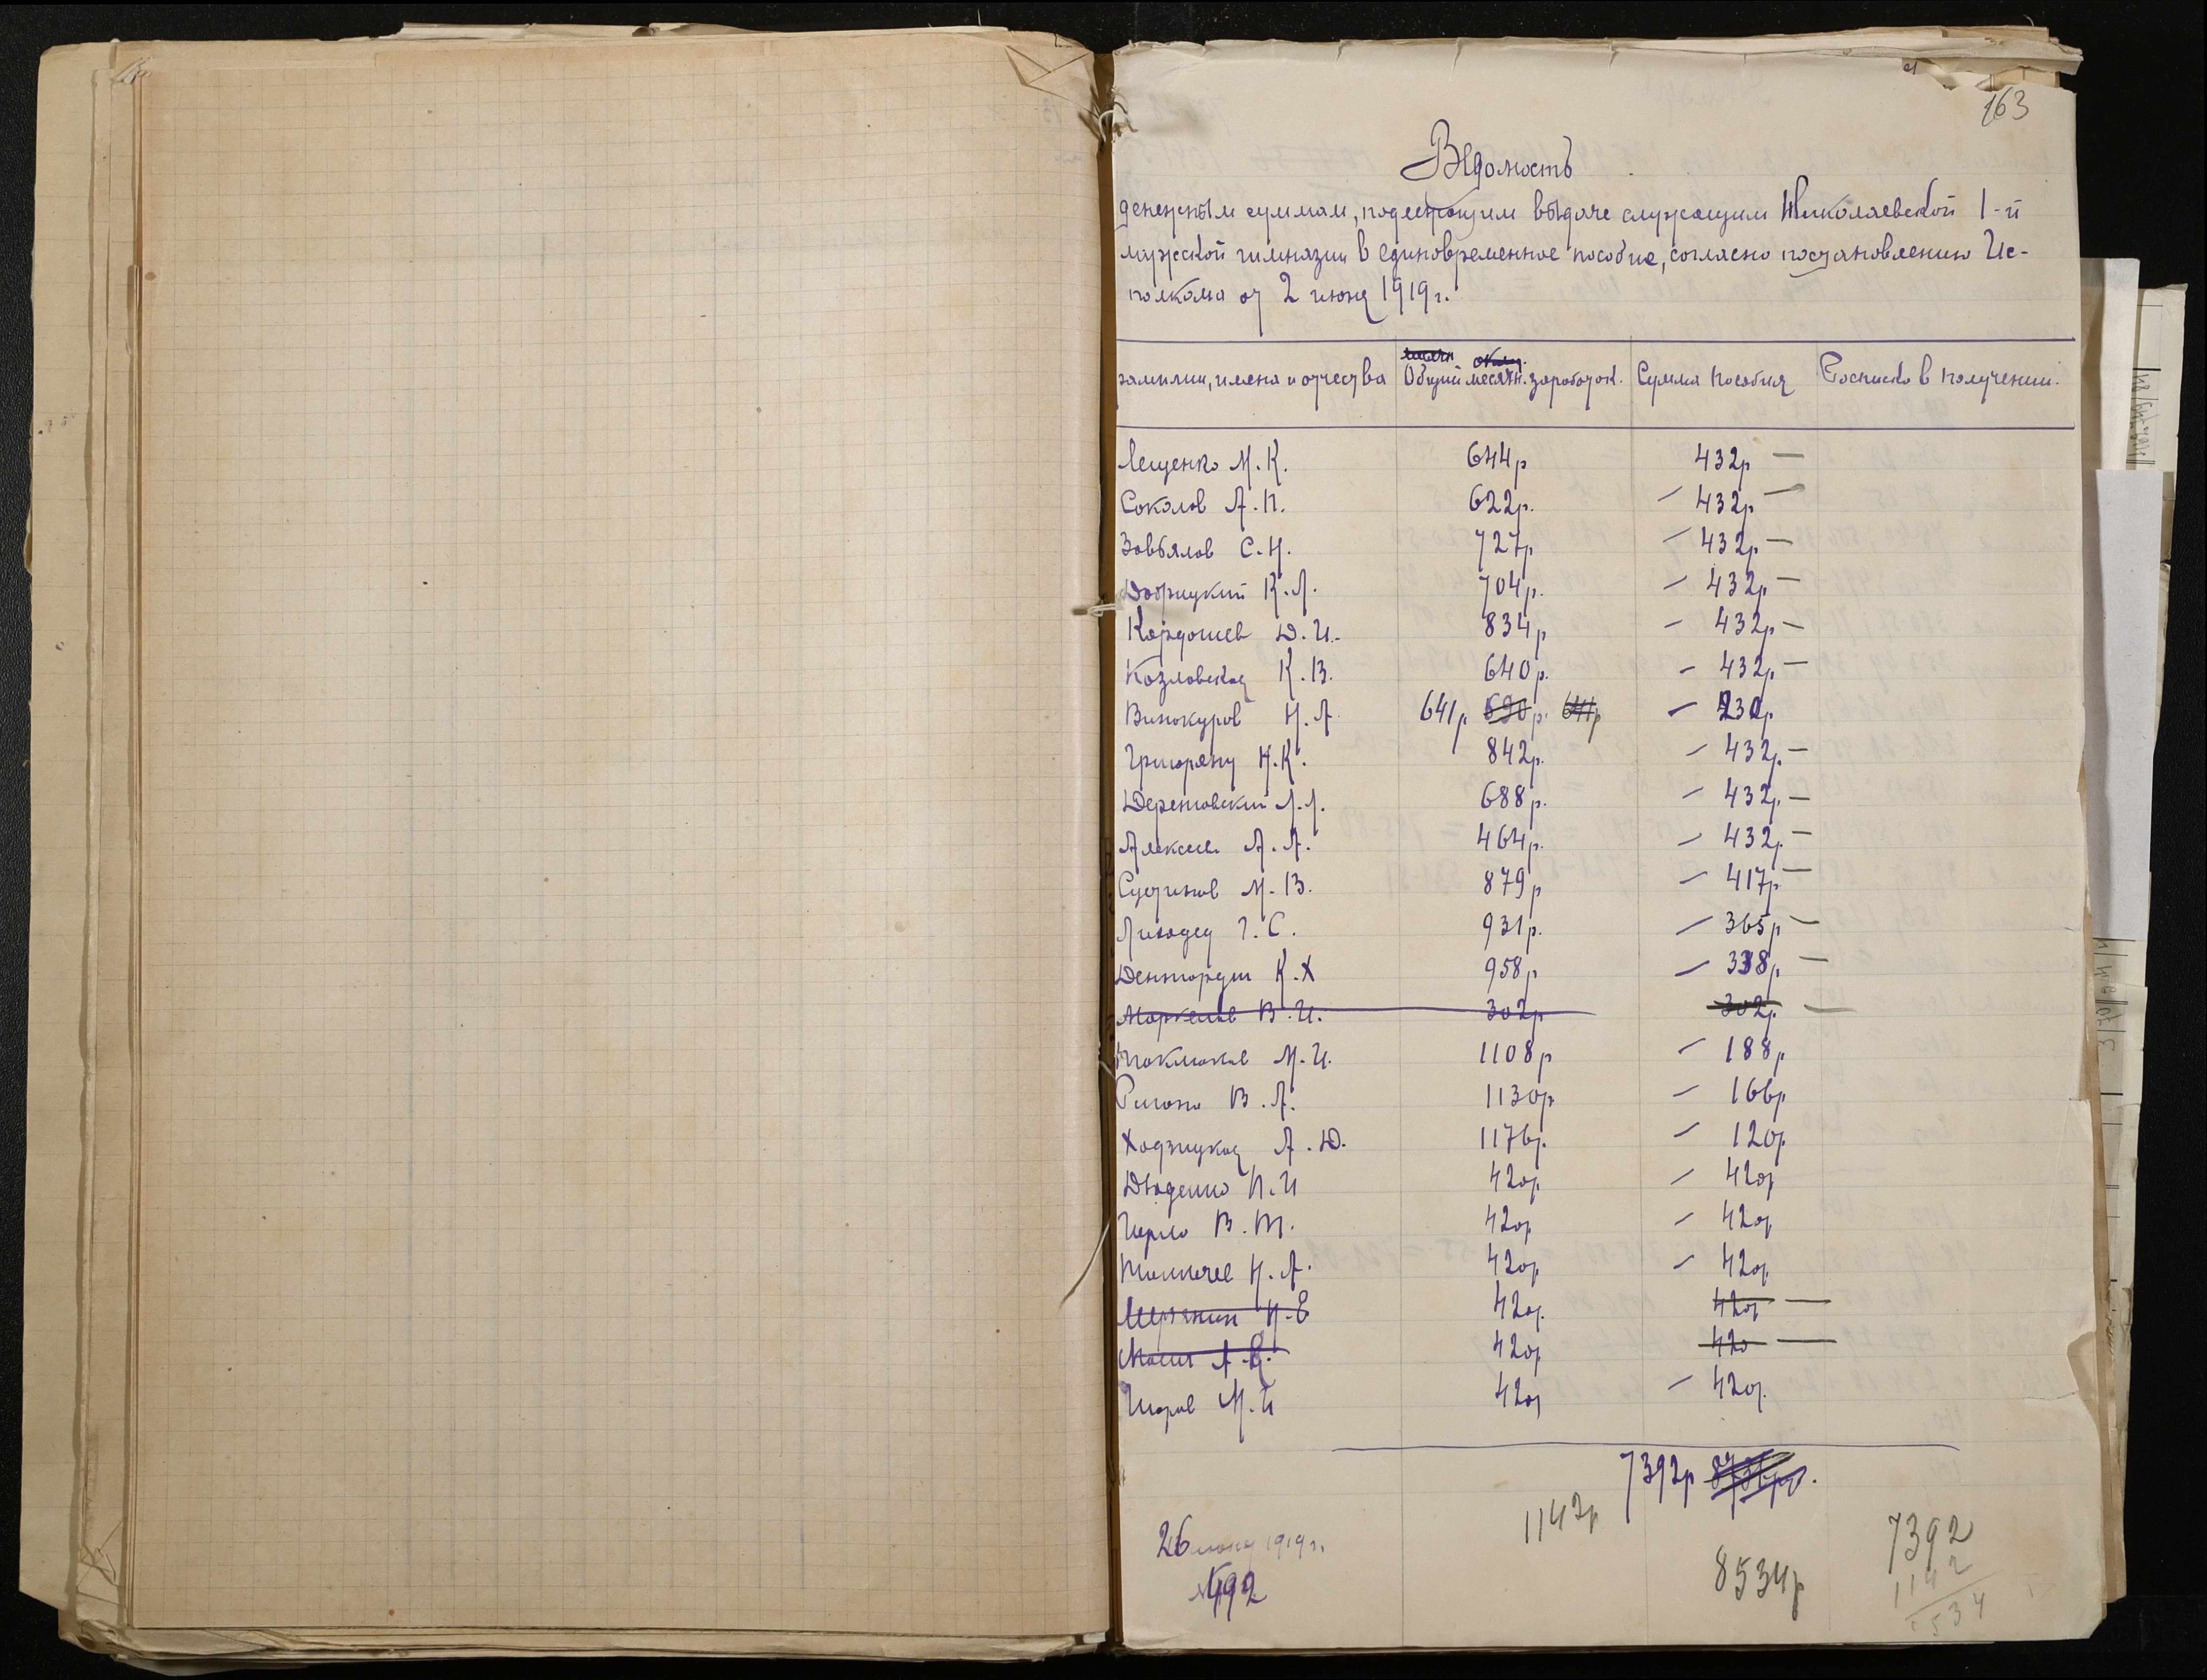 163
Ведомость
денежным суммам, подлежащим выдаче служащим Николаевской 1-й
мужской гимназии в единовременное пособие, согласно постановлению Ис-
полкома от 2 июня 1919 г.
фамилии, имена и отчества Общий месячн. заработок. Сумма пособия Росписка в получении.
Лещенко М. К. 644р 432р —
Соколов А. П. 622р. — 432р —
Завьялов С. Н. 727р — 432р —
Добрицкий К. Л. 704р. — 432р —
Кардашев Д. И. 834р — 432р —
Козловская К. В. 640р. — 432р —
Винокуров Н. А. 641р. 690р. 641р — 230р
Григорян Н. К. 842р. — 432р. —
Деренговский Л. Л. 688р. — 432р. —
Алексеев А. А. 464р. — 432р. —
Сустинов М. В. 879р — 417р —
Лиходед Г. С. 931р. — 365р —
К. Х 958р — 338р. —
Маркелов В. И. 302р 302р. —
М. И. 1108р — 188р
В. А. 1130р — 166р
Ходзицкая А. Д. 1176р. — 120р
Дяденко Н. И 420р — 420р
В. Т. 420р — 420р
Н. А. 420р — 420р
Н. Е 420р. 420р —
420р 420 —
М. И 420р — 420р.
7392р
1142р
26 июня 1919 г.
№ 492
8534р
7392
1142
8534